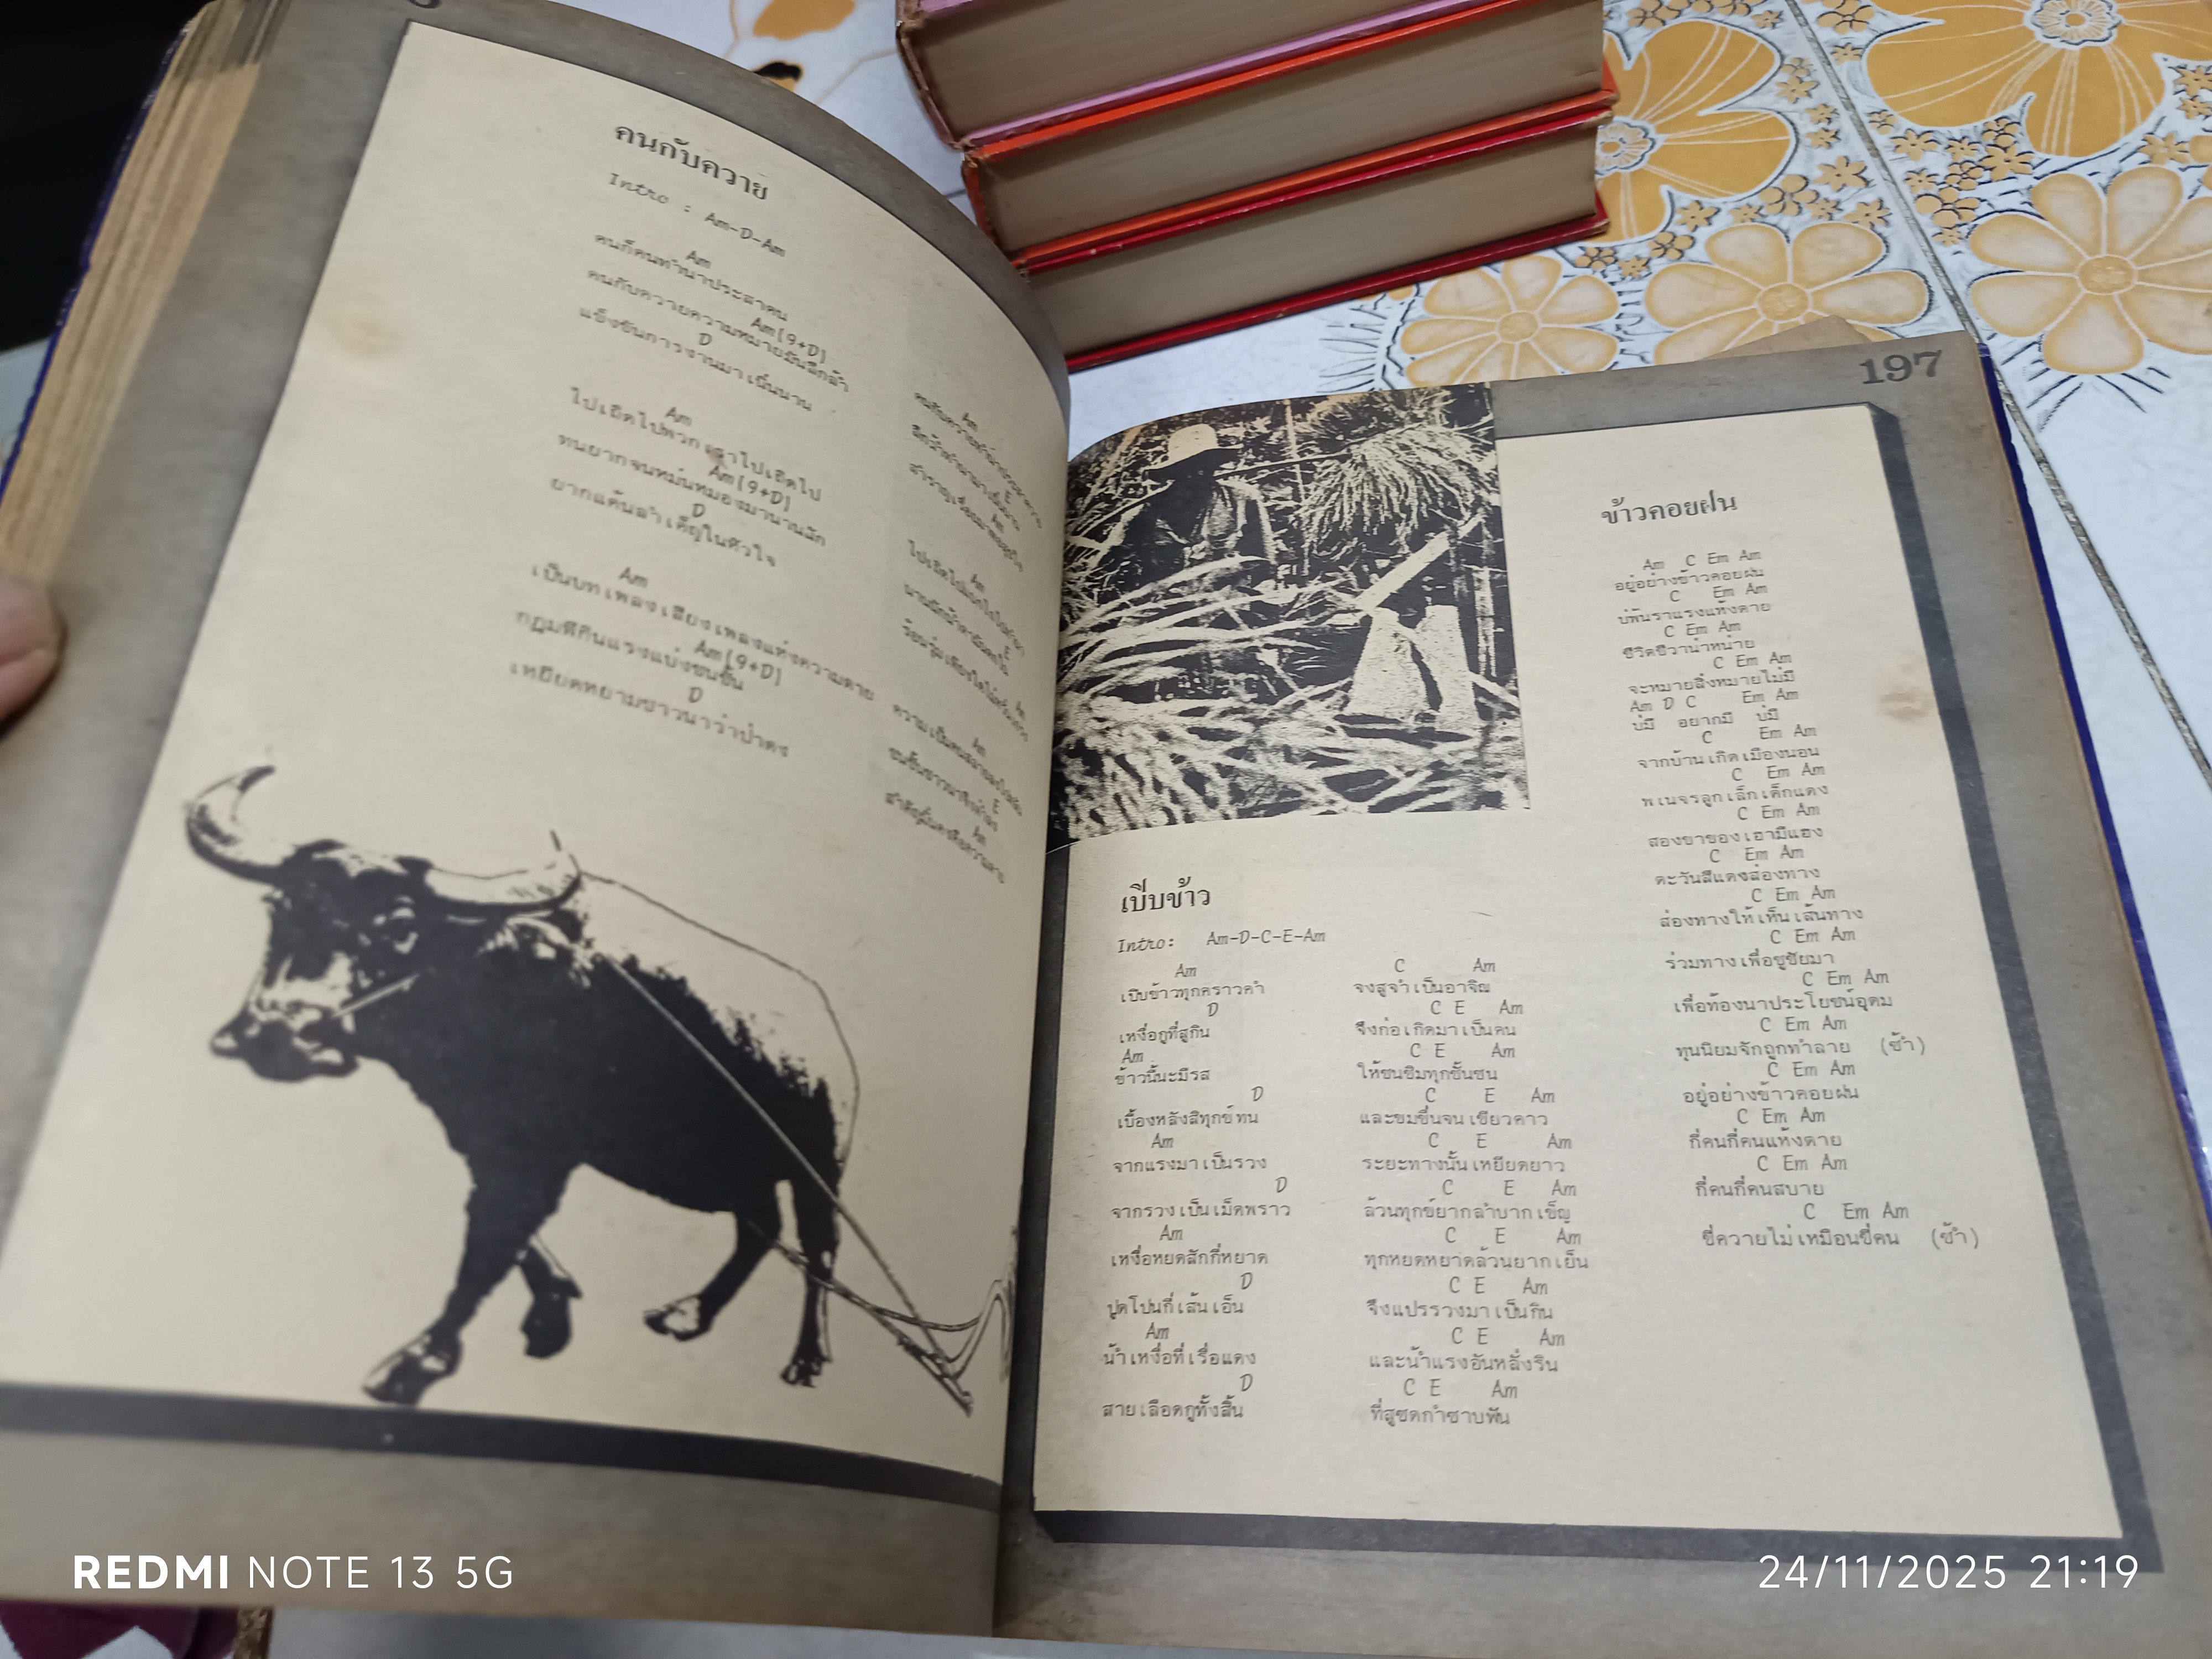 คนกับควาย
Intro : Am-D-Am
Am
คนก็คนทำนาประสาคน
Am(9+D)
คนกับควายความหมายมันลึกล้ำ
D
แข็งขันการงานมาเนิ่นนาน
Am
ไปเถิดไปพวกเราไปเถิดไป
Am(9+D)
ทนยากจนหม่นหมองมานานนัก
D
ยากแค้นลำเค็ญในหัวใจ
Am
เป็นบทเพลงเสียงเพลงแห่งความตาย
Am(9+D)
กฎุมพีกินแรงแบ่งชนชั้น
D
เหยียดหยามชาวนาว่าป่าดง
Am
E
Am
Am
E
Am
Am
E
Am
197
ข้าวคอยฝน
Am C Em Am
อยู่อย่างข้าวคอยฝน
C Em Am
บ่พ้นราแรงแห้งตาย
C Em Am
ชีวิตชีวาน่าหน่าย
C Em Am
จะหมายสิ่งหมายไม่มี
Am D C Em Am
บ่มี อยากมี บ่มี
C Em Am
จากบ้านเกิดเมืองนอน
C Em Am
พเนจรลูกเล็กเด็กแดง
C Em Am
สองขาของเฮามีแฮง
C Em Am
ตะวันสีแดงส่องทาง
C Em Am
ส่องทางให้เห็นเส้นทาง
C Em Am
ร่วมทางเพื่อชูชัยมา
C Em Am
เพื่อท้องนาประโยชน์อุดม
C Em Am
ทุนนิยมจักถูกทำลาย (ซ้ำ)
C Em Am
อยู่อย่างข้าวคอยฝน
C Em Am
กี่คนกี่คนแห้งตาย
C Em Am
กี่คนกี่คนสบาย
C Em Am
ขี่ควายไม่เหมือนขี่คน (ซ้ำ)
เปิบข้าว
Intro: Am-D-C-E-Am
Am C Am
เปิบข้าวทุกคราวคำ จงสูจำเป็นอาจิณ
D C E Am
เหงื่อกูที่สูกิน จึงก่อเกิดมาเป็นคน
Am C E Am
ข้าวนี้นะมีรส ให้ชนชิมทุกชั้นชน
D C E Am
เบื้องหลังสิทุกข์ทน และขมขื่นจนเขียวคาว
Am C E Am
จากแรงมาเป็นรวง ระยะทางนั้นเหยียดยาว
D C E Am
จากรวงเป็นเม็ดพราว ล้วนทุกข์ยากลำบากเข็ญ
Am C E Am
เหงื่อหยดสักกี่หยาด ทุกหยดหยาดล้วนยากเย็น
D C E Am
ปูดโปนกี่เส้นเอ็น จึงแปรรวงมาเป็นกิน
Am C E Am
น้ำเหงื่อที่เรื่อแดง และน้ำแรงอันหลั่งริน
D C E Am
สายเลือดกูทั้งสิ้น ที่สูซดกำซาบฟัน
REDMI NOTE 13 5G
24/11/2025 21:19